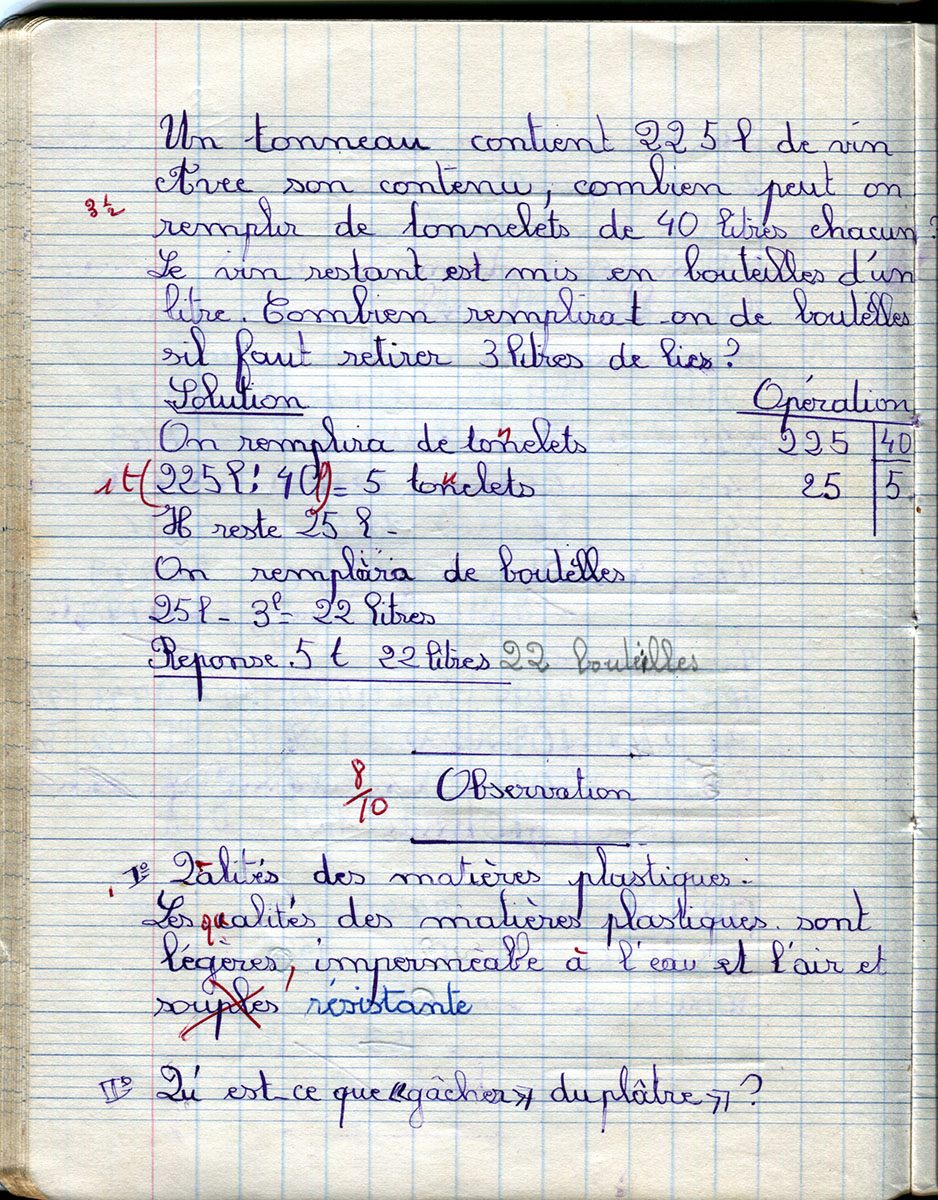 Un tonneau contient 225 l de vin
Avec son contenu, combien peut on
3 1/2
remplir de tonnelets de 40 litres chacun?
Le vin restant est mis en bouteilles d'un
litre. Combien remplirat-on de boutelles
sil faut retirer 3 litres de lies?
Solution
Opération
On remplira de tonnelets
225 40
1t (225 l : 40 l) = 5 tonnelets
25 5
Il reste 25 l -
On remplira de boutelles
25 l - 3 l = 22 litres
Reponse 5 t 22 litres 22 bouteilles
8/10
Observation
I° Qalités des matières plastiques.
Les qualités des matières plastiques sont
légères, imperméable à l'eau et l'air et
souples résistante
II° Qu'est-ce que «gâcher» du plâtre»?